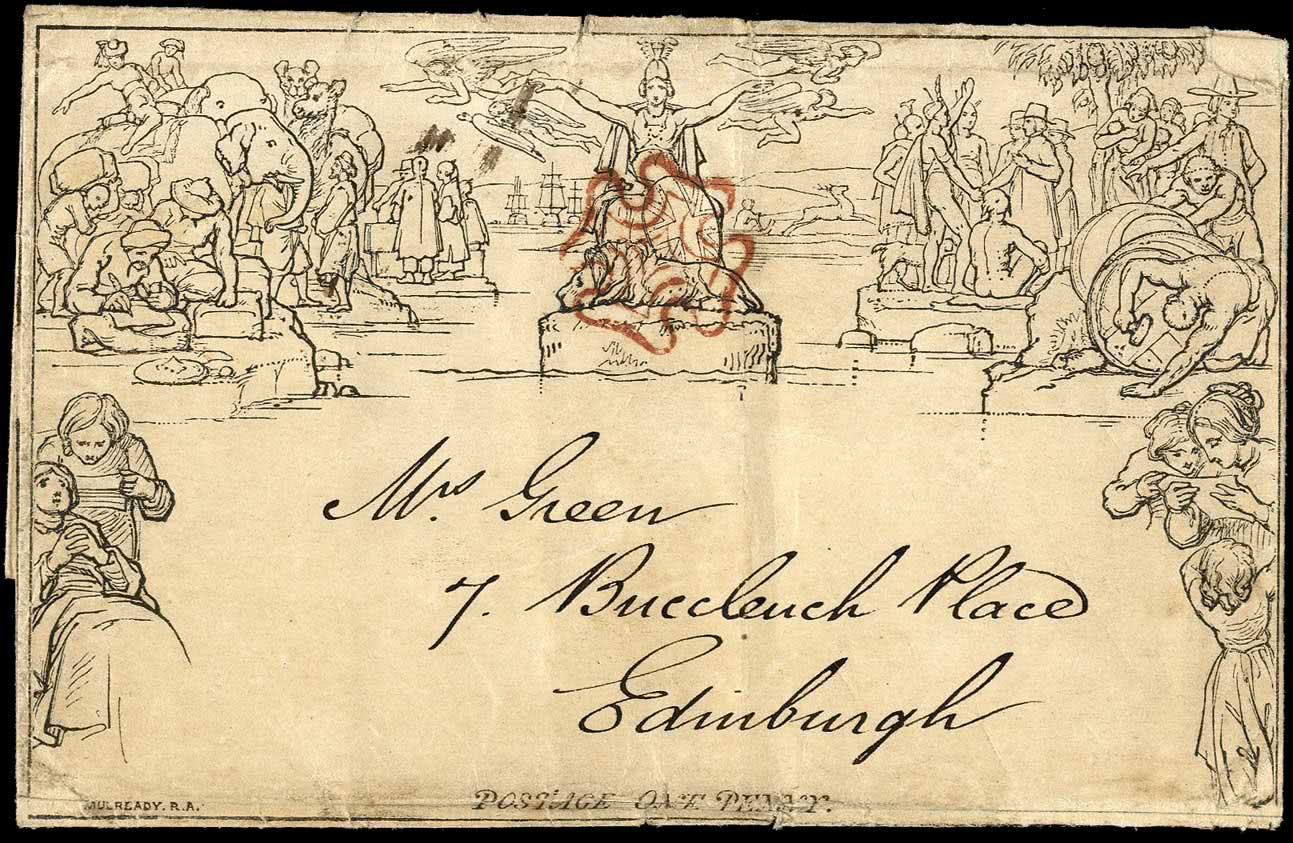 Mrs Green
7. Buccleuch Place
Edinburgh
MULREADY. R.A.
POSTAGE ONE PENNY.